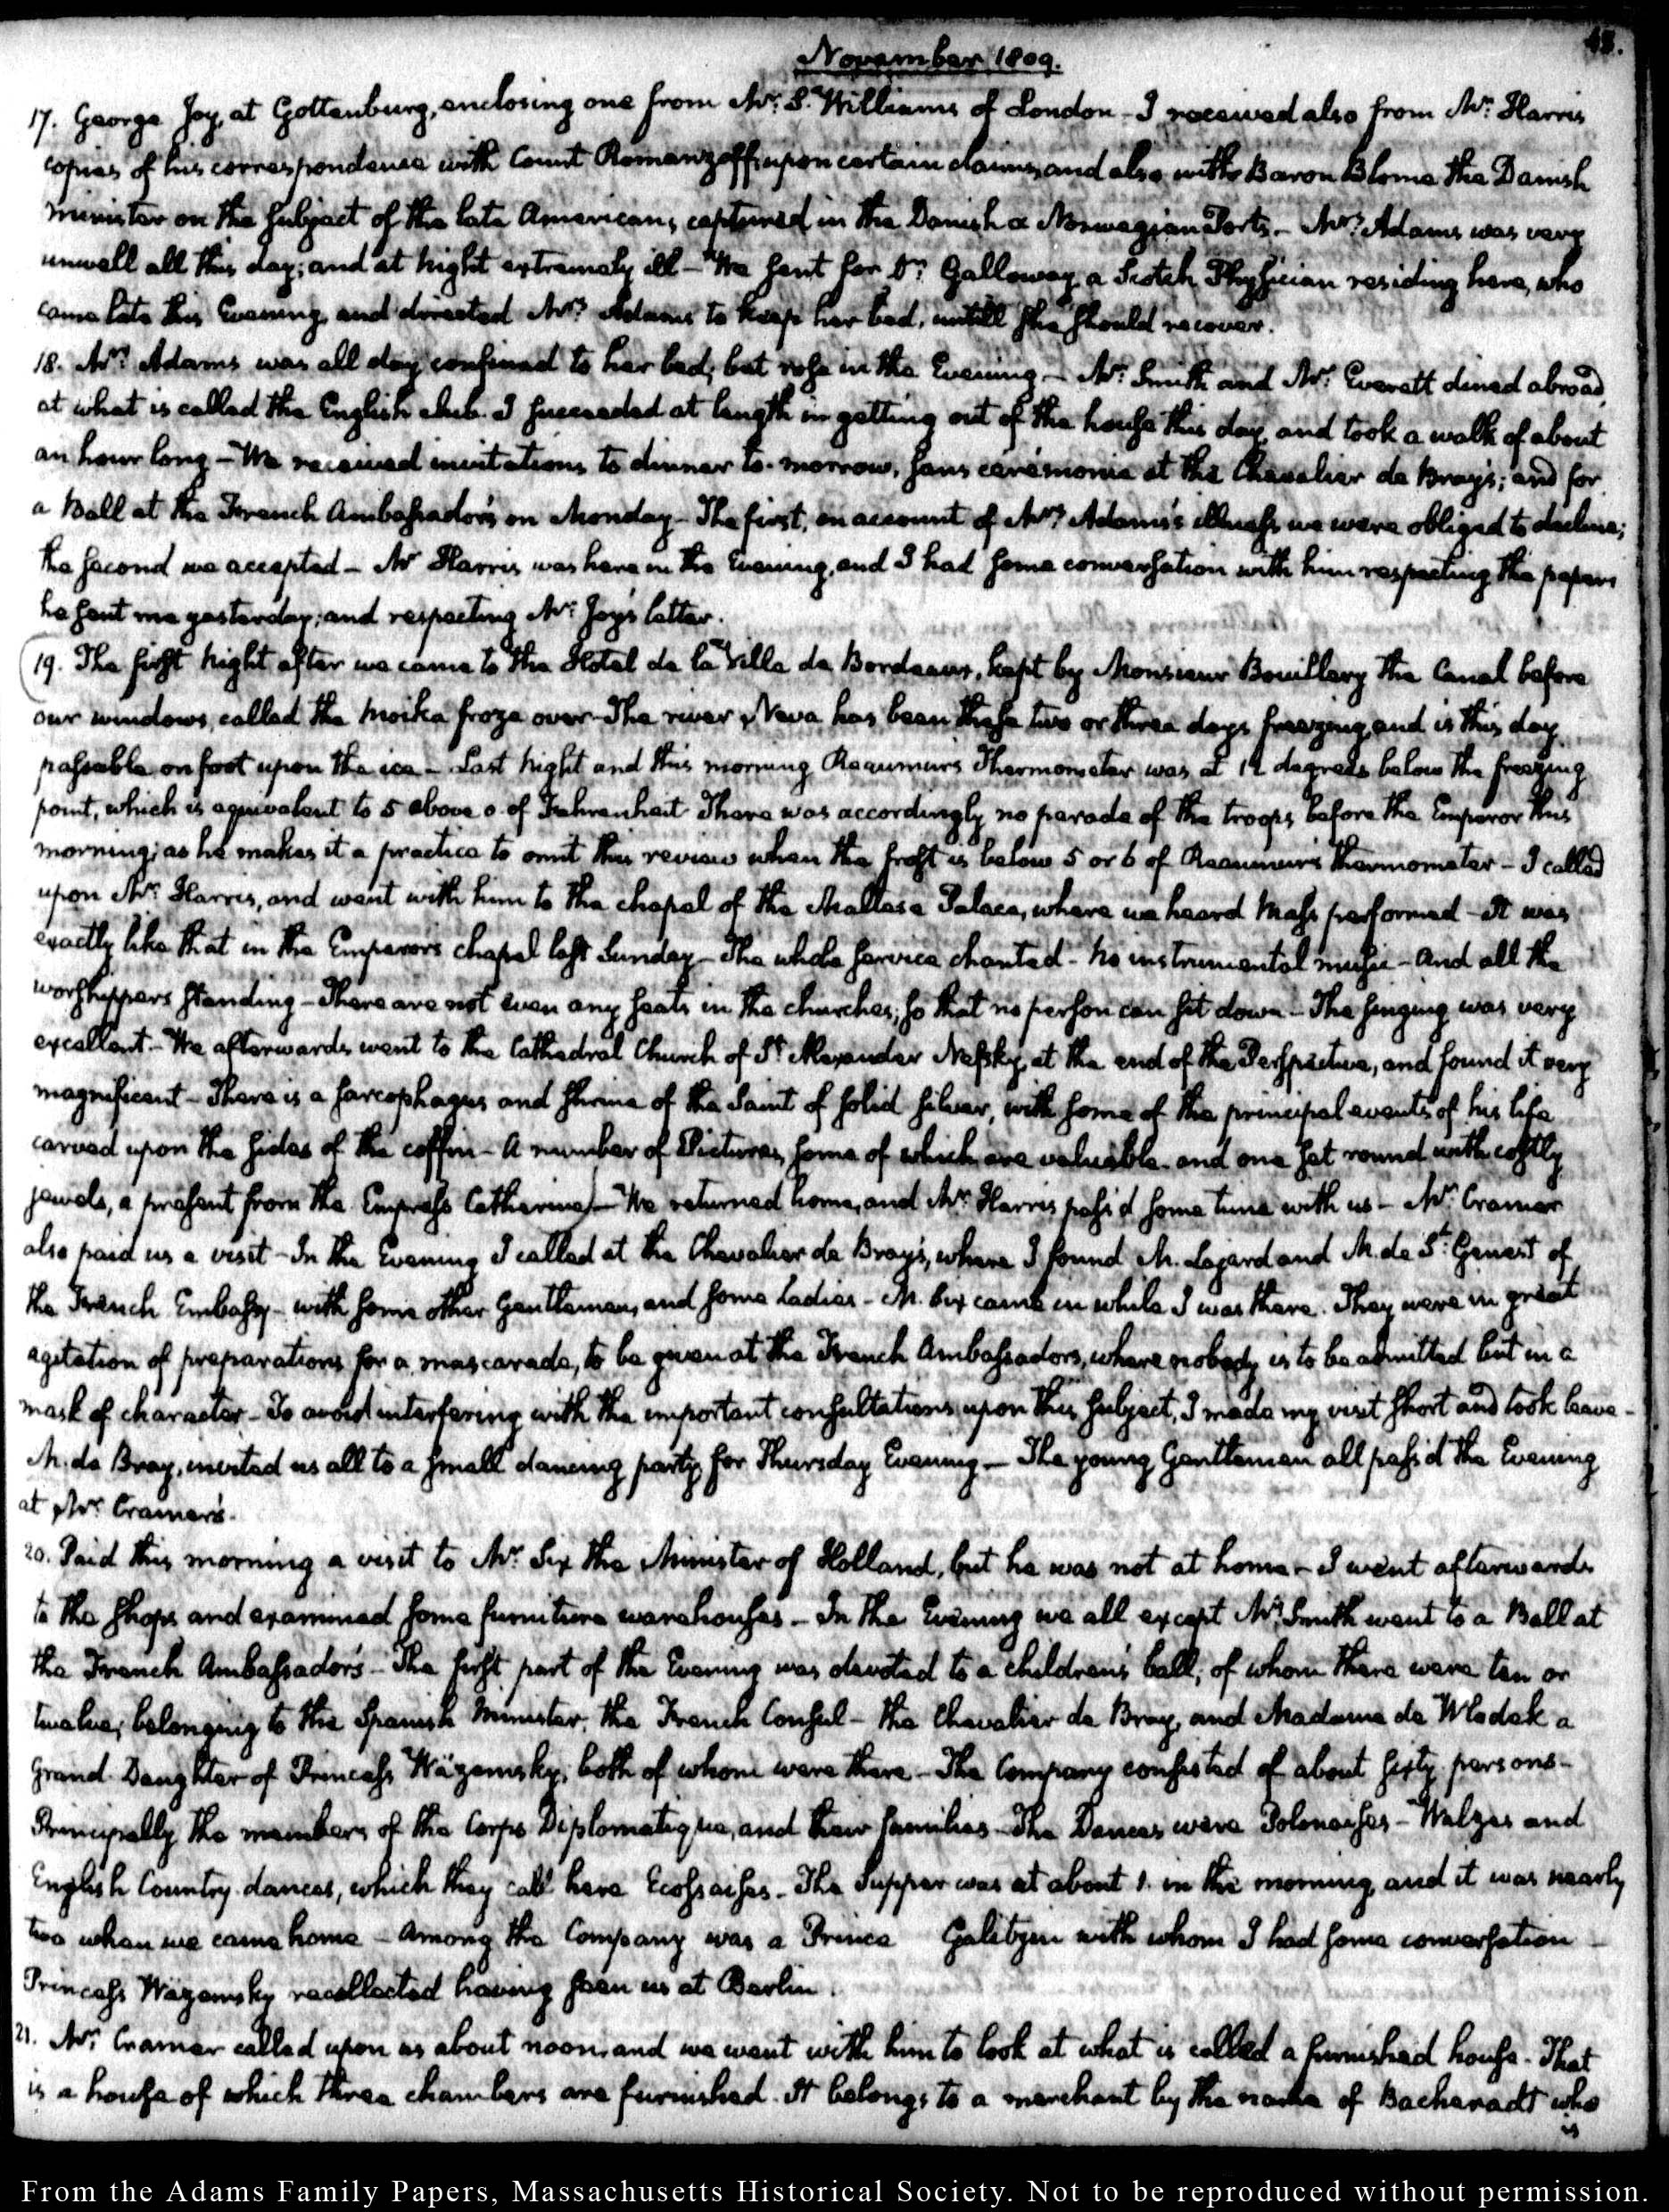 November 1809.
48.
17. George Joy, at Gottenburg, enclosing one from Mr: S. Williams of London - I received also from Mr: Harris
copies of his correspondence with Count Romanzoff upon certain claims, and also with Baron Blome the Danish
minister on the subject of the late Americans captured in the Danish & Norwegian Ports. - Mrs: Adams was very
unwell all this day; and at night extremely ill - We sent for Dr: Galloway, a Scotch Physician residing here, who
came late this Evening, and directed Mrs: Adams to keep her bed, untill she should recover.
18. Mrs: Adams was all day confined to her bed; but rose in the Evening - Mr: Smith and Mr: Everett dined abroad,
at what is called the English club. I succeeded at length in getting out of the house this day, and took a walk of about
an hour long - We received invitations to dinner to-morrow, sans cérémonie at the Chevalier de Bray's; and for
a Ball at the French Ambassador's on Monday - The first, on account of Mrs: Adams's illness we were obliged to decline;
the second we accepted - Mr Harris was here in the Evening, and I had some conversation with him respecting the papers
he sent me yesterday; and respecting Mr: Joy's letter.
19. The first night after we came to the Hotel de la Ville de Bordeaux, kept by Monsieur Bouillary the Canal before
our windows, called the Moika froze over - The river Neva has been these two or three days freezing, and is this day
passable on foot upon the ice - Last night and this morning Reaumur's Thermometer was at 12 degrees below the freezing
point, which is equivalent to 5 above 0 of Fahrenheit There was accordingly no parade of the troops before the Emperor this
morning; as he makes it a practice to omit this review when the frost is below 5 or 6 of Reaumur's thermometer - I called
upon Mr: Harris, and went with him to the chapel of the Maltese Palace, where we heard Mass performed - It was
exactly like that in the Emperor's chapel last Sunday - The whole service chanted - no instrumental music - And all the
worshippers standing - There are not even any seats in the churches; so that no person can sit down - The singing was very
excellent - We afterwards went to the Cathedral Church of St: Alexander Nefsky, at the end of the Perspective, and found it very
magnificent - There is a sarcophagus and shrine of the Saint of solid silver, with some of the principal events of his life
carved upon the sides of the coffin - A number of Pictures, some of which are valuable - and one set round with costly
jewels, a present from the Empress Catherine) - We returned home, and Mr: Harris pass'd some time with us - Mr: Cramer
also paid us a visit - In the Evening I called at the Chevalier de Bray's, where I found M. Lajard and M. de St: Genest of
the French Embassy - with some other Gentlemen, and some Ladies - M. Six came in while I was there. They were in great
agitation of preparations for a mascarade, to be given at the French Ambassadors, where nobody is to be admitted but in a
mask of character - To avoid interfering with the important consultations upon this subject, I made my visit short and took leave -
M. de Bray, invited us all to a small dancing party for Thursday Evening - The young Gentlemen all pass'd the Evening
at Mr: Cramer's.
20. Paid this morning a visit to Mr: Six the Minister of Holland, but he was not at home - I went afterwards
to the shops and examined some furniture warehouses - In the Evening we all except Mr: Smith went to a Ball at
the French Ambassador's - The first part of the Evening was devoted to a children's ball; of whom there were ten or
twelve; belonging to the Spanish Minister, the French Consul - the Chevalier de Bray, and Madame de Wlodek a
Grand-Daughter of Princess Wäzemsky; both of whom were there - The Company consisted of about sixty persons -
Principally the members of the Corps Diplomatique, and their families - The Dances were Polonaises - Walzes and
English Country-dances, which they call here Ecossaises - The Supper was at about 1. in the morning, and it was nearly
two when we came home - Among the Company was a Prince Galitzin with whom I had some conversation -
Princess Wäzemsky recollected having seen us at Berlin.
21. Mr: Cramer called upon us about noon, and we went with him to look at what is called a furnished house - That
is a house of which three chambers are furnished. It belongs to a merchant by the name of Bacheracht who
is
From the Adams Family Papers, Massachusetts Historical Society. Not to be reproduced without permission.